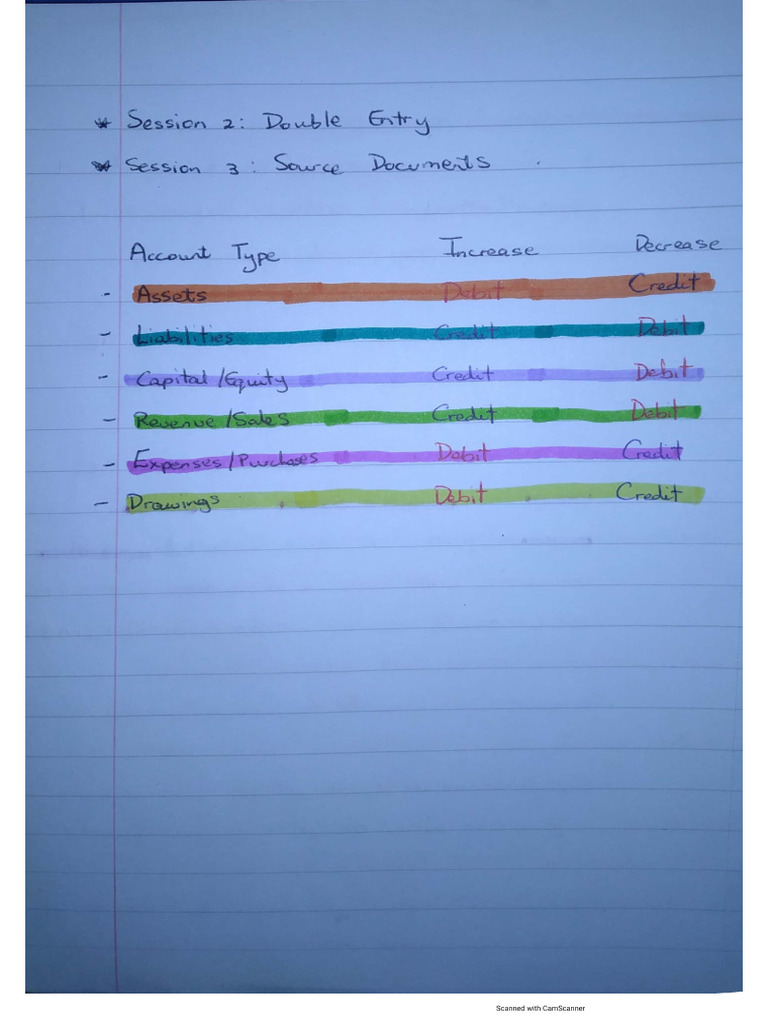 * Session 2: Double Entry
* Session 3: Source Documents
Account Type Increase Decrease
- Assets Debit Credit
- Liabilities Credit Debit
- Capital/Equity Credit Debit
- Revenue/Sales Credit Debit
- Expenses/Purchases Debit Credit
- Drawings Debit Credit
Scanned with CamScanner